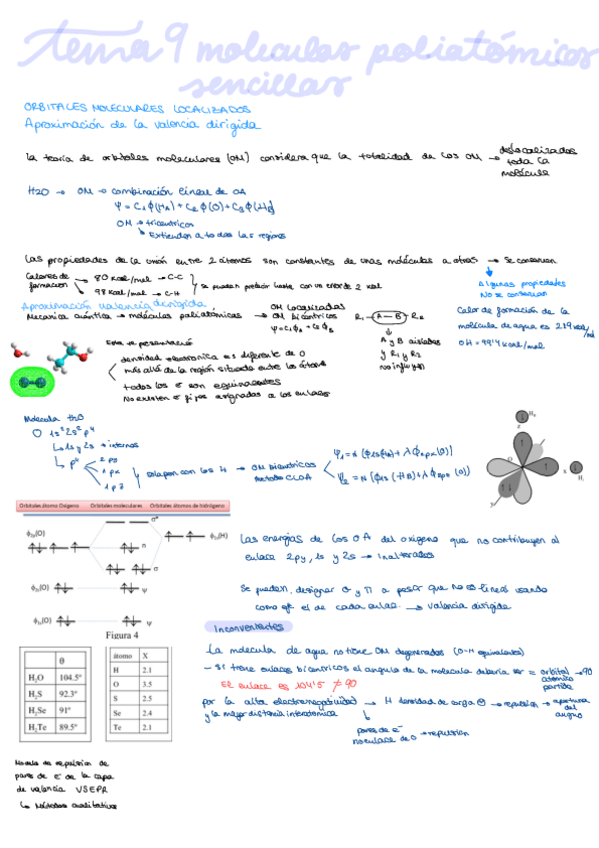 tema 9 moleculas poliatómicas
sencillas
ORBITALES MOLECULARES LOCALIZADOS
Aproximación de la valencia dirigida
La teoría de orbitales moleculares (OM) considera que la totalidad de los OM → deslocalizados
toda la
molécula
H2O → OM → combinación lineal de OA
Ψ = C₁ϕ(HA) + C₂ϕ(O) + C₃ϕ(HB)
OM → tricentricos
Extienden a todas las regiones
Las propiedades de la unión entre 2 átomos son constantes de unas moléculas a otras → se conservan
Calores de
formación
80 kcal/mol → C-C
98 kcal/mol → C-H
se pueden predecir hasta con un error de 2 kcal
Algunas propiedades
No se conservan
Aproximación valencia dirigida
Mecánica cuántica → moléculas poliatómicas → OM localizadas
OM bicéntricos
R₁ A - B R₂
A y B aislados
y R₁ y R₂
no influyen
Calor de formación de la
molécula de agua es 219 kcal/mol
densidad electronica es diferente de 0
más allá de la región situada entre los átomos
todos los e⁻ son equivalentes
No existen e⁻ fijos asignados a los enlaces
Molecula H2O
O 1s² 2s² p⁴
1s y 2s → internos
p⁴
1 px
1 pz
solapan con los H → OM bicentricos
metodo CLOA
Orbitales átomo Oxígeno Orbitales moleculares Orbitales átomos de hidrógeno
σ*
ϕ₂ₚ(O)
ϕ₁ₛ(H)
n
σ
ϕ₂ₛ(O) Ψ
ϕ₁ₛ(O) Ψ
Figura 4
Las energías de los OA del oxígeno que no contribuyen al
enlace 2py, 1s y 2s → inalterados
Se pueden designar σ y π a pesar que no es lineal usando
como eje el de cada enlace → valencia dirigida
Inconvenientes
La molecula de agua no tiene OM degenerados (O-H equivalentes)
- si tiene enlaces bicentricos el angulo de la molecula debería ser = orbital
atómico
partida
→ 90
El enlace es 104'5 ≠ 90
por la alta electronegatividad → H densidad de carga ⊕ → repulsión → apertura
del
angulo
y la mayor distancia interatómica
pares de e⁻
no enlace de O → repulsión
θ
H₂O 104.5º
H₂S 92.3º
H₂Se 91º
H₂Te 89.5º
átomo X
H 2.1
O 3.5
S 2.5
Se 2.4
Te 2.1
Modelo de repulsion de
pares de e⁻ de la capa
de valencia VSEPR
↳ Métodos cualitativos